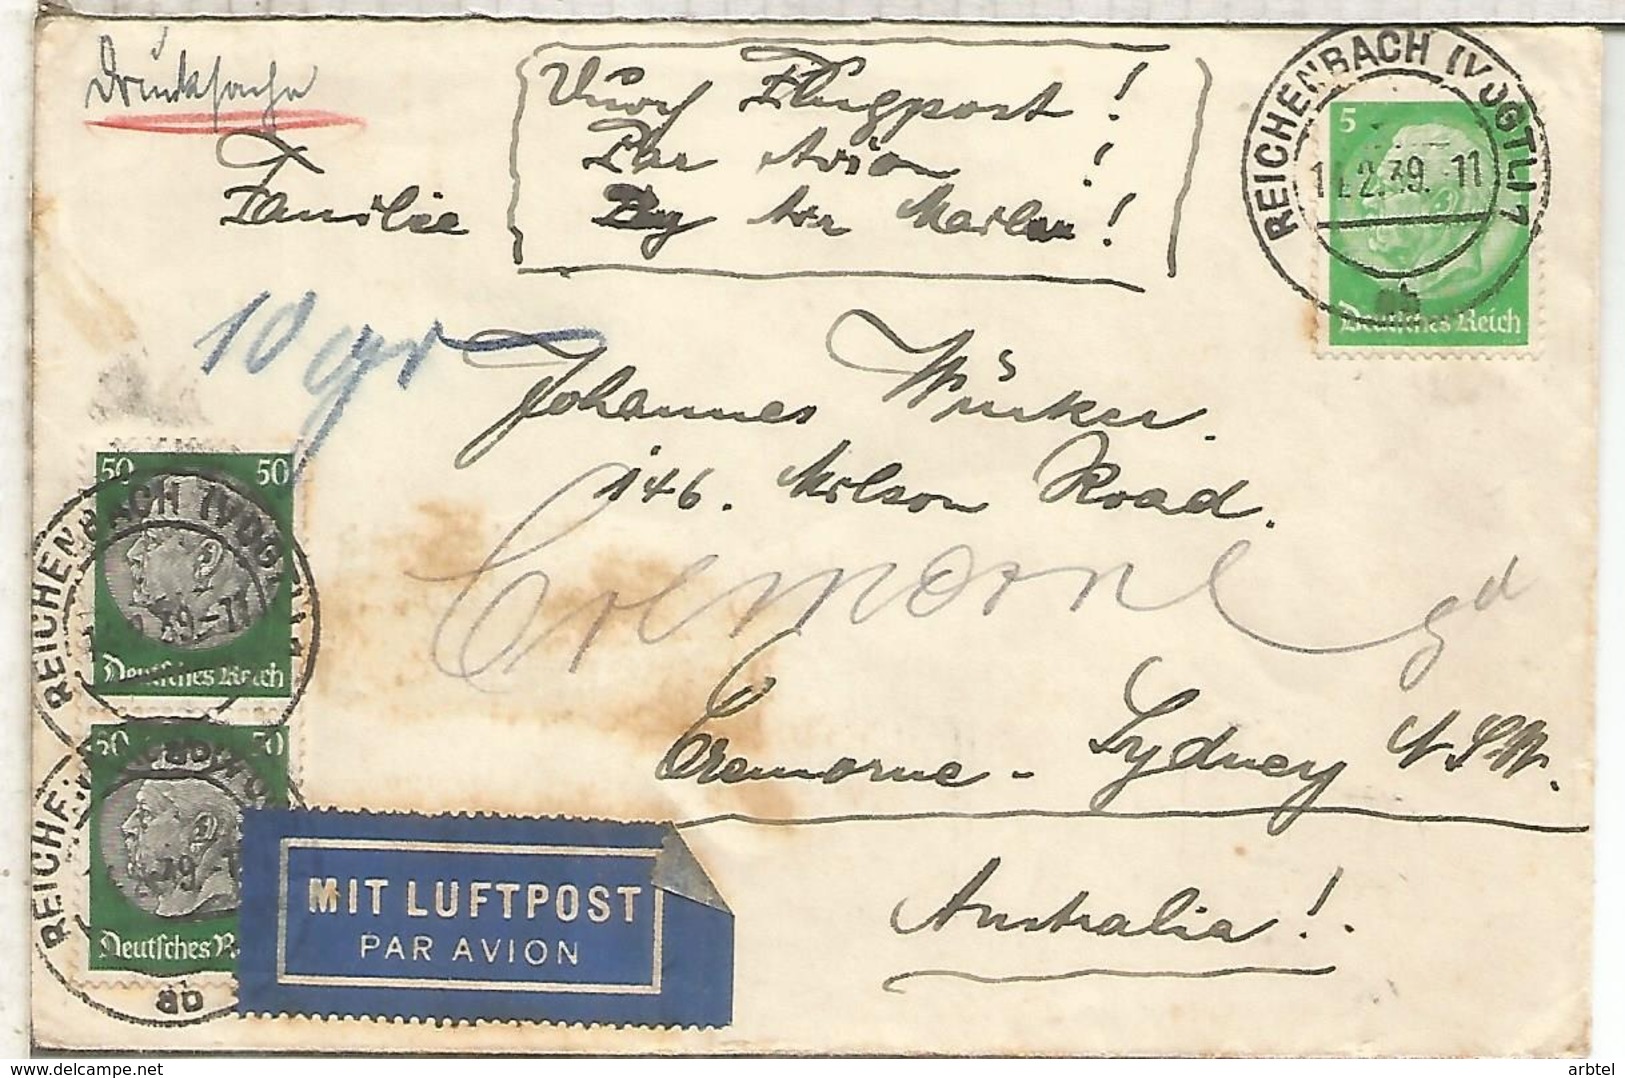 Drucksache
Durch Flugpost!
Par Avion!
By Air Mail!
Familie
REICHENBACH (VOGTL) 1
11.2.39.-11
ab
5
Deutsches Reich
10 gr
Johannes Würker.
146. Milson Road.
Cremorne
Cremorne - Sydney N.S.W.
Australia!
50 50
REICHENBACH (VOGTL) 1
39.-11
Deutsches Reich
50 50
39.-1
Deutsches R
ab
MIT LUFTPOST
PAR AVION
arbtel